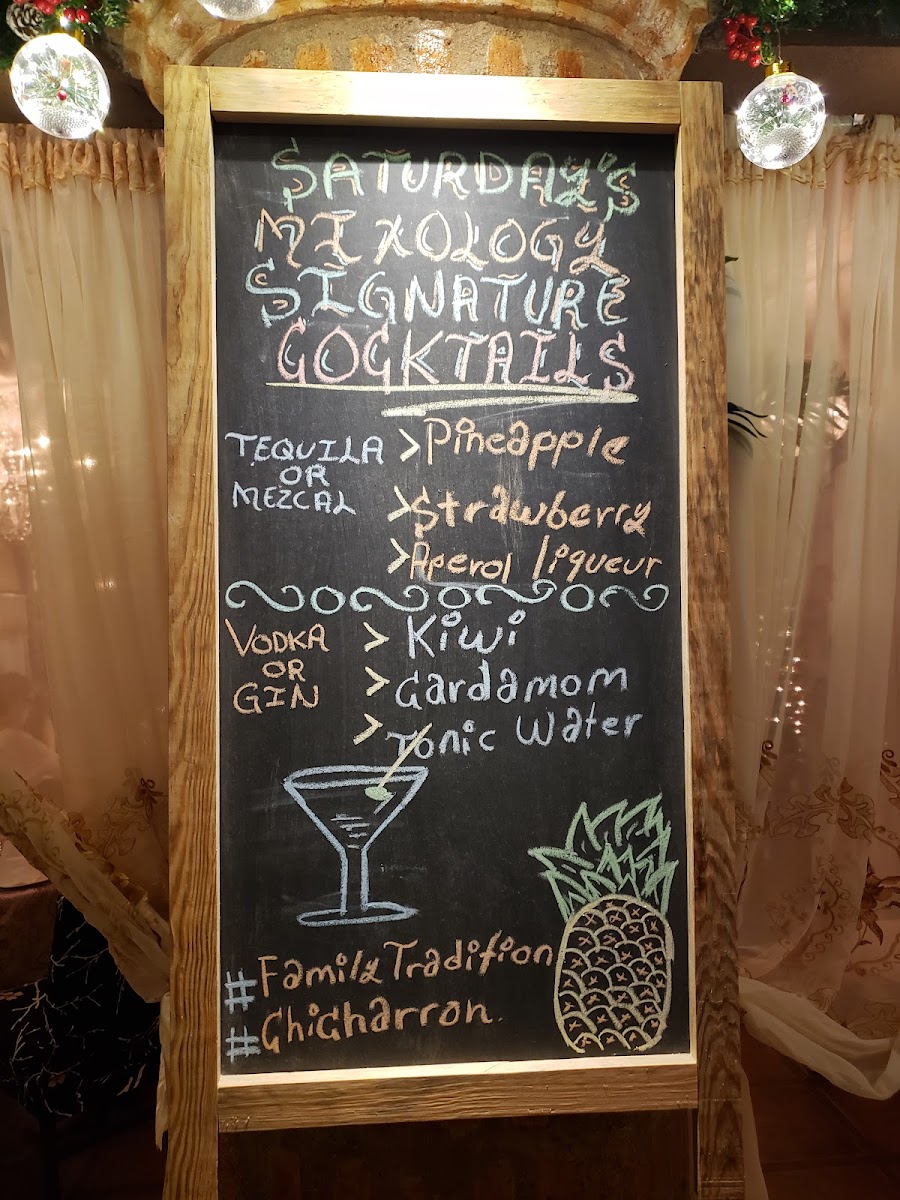 SATURDAY'S
MIXOLOGY
SIGNATURE
COCKTAILS
TEQUILA
OR
MEZCAL
>Pineapple
>Strawberry
>Aperol liqueur
VODKA
OR
GIN
> Kiwi
> Cardamom
> Tonic Water
#FamilyTradition
#Chicharron.